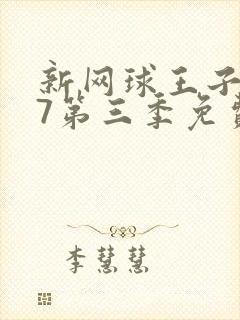 新网球王子
7第三季免费
李慧慧